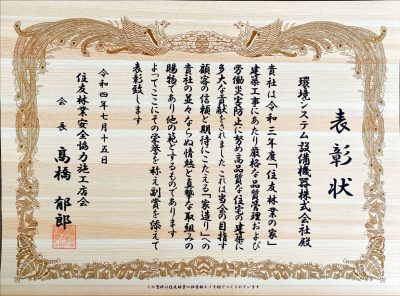 表彰状
環境システム設備機器株式会社殿
貴社は令和三年度「住友林業の家」
建築工事にあたり厳格な品質管理および
労働災害防止に努め高品質な住宅の建築に
多大な貢献をされました これは当会の目指す
顧客の信頼と期待にこたえる「家造り」への
貴社の並々ならぬ情熱と真摯な取組みの
賜物であり他の範とするものであります
よってここにその栄誉を称え副賞を添えて
表彰致します
令和四年七月十五日
住友林業安全協力施工店会
会長 髙橋郁郎
この賞状は住友林業の社有林ヒノキ材でつくられています